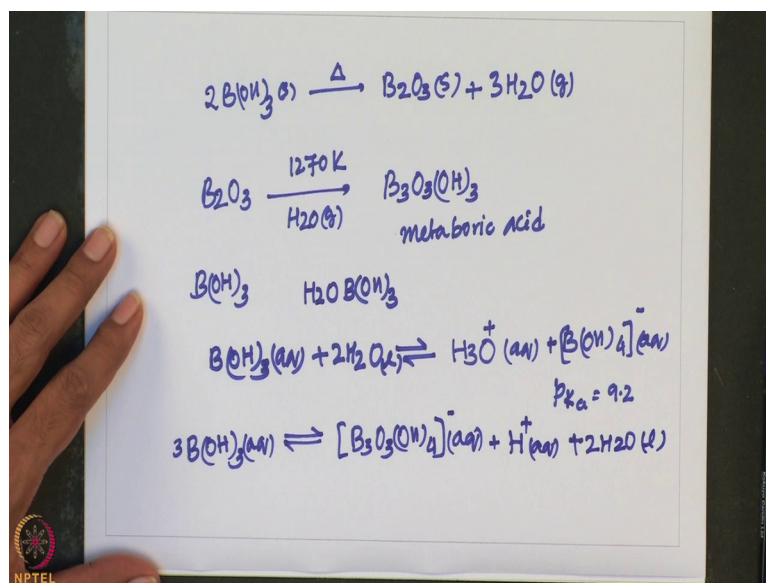 2B(OH)3(s) Δ→ B2O3(s) + 3H2O(g)
B2O3 1270K→ H2O(g) B3O3(OH)3
metaboric acid
B(OH)3 H2O B(OH)3
B(OH)3(aq) + 2H2O(l) ⇌ H3O+(aq) + [B(OH)4]-(aq)
pKa = 9.2
3B(OH)3(aq) ⇌ [B3O3(OH)4]-(aq) + H+(aq) + 2H2O(l)
NPTEL